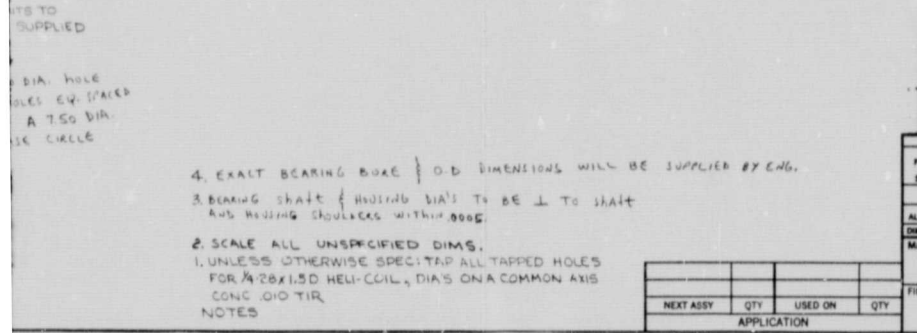 NTS TO
SUPPLIED
DIA. HOLE
OLES EQ. SPACED
A 7.50 DIA.
SE CIRCLE
4. EXACT BEARING BORE & O.D DIMENSIONS WILL BE SUPPLIED BY ENG.
3. BEARING SHAFT & HOUSING DIA'S TO BE ⊥ TO SHAFT
AND HOUSING SHOULDERS WITHIN .0005.
2. SCALE ALL UNSPECIFIED DIMS.
1. UNLESS OTHERWISE SPEC: TAP ALL TAPPED HOLES
FOR 1/4-28X1.5D HELI-COIL, DIA'S ON A COMMON AXIS
CONC .010 TIR
NOTES
NEXT ASSY QTY USED ON QTY
APPLICATION